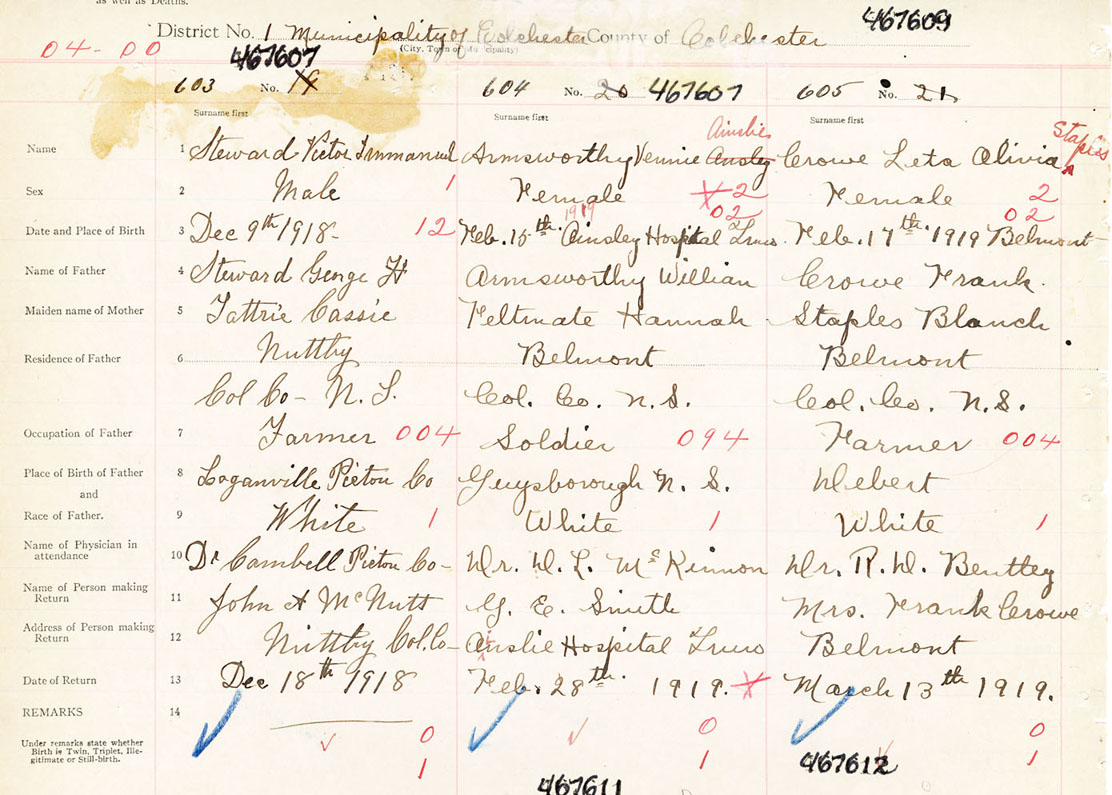 as well as Deaths.
467609
District No. 1 Municipality of Colchester County of Colchester
(City, Town or Municipality)
04-00
467607
603 No. 19 604 No. 20 467607 605 No. 21
Surname first Surname first Surname first
Ainslie Staples
Name 1 Steward Victor Immanuel Armsworthy Vennie Ansley Crowe Leta Olivia
Sex 2 Male 1 Female 2 Female 2
1919 02 02
Date and Place of Birth 3 Dec 9th 1918- 12 Feb. 15th. Ainsley Hospital Truro. Feb. 17th. 1919 Belmont-
Name of Father 4 Steward George H Armsworthy William Crowe Frank.
Maiden name of Mother 5 Tattrie Cassie Feltmate Hannah Staples Blanch
Residence of Father 6 Nuttby Belmont Belmont
Col Co- N.S. Col. Co. N.S. Col. Co. N.S.
Occupation of Father 7 Farmer 004 Soldier 094 Farmer 004
Place of Birth of Father 8 Loganville Pictou Co Guysborough N. S. Debert
and
Race of Father. 9 White 1 White 1 White 1
Name of Physician in
attendance 10 Dr Cambell Pictou Co- Dr. D. L. McKinnon Dr. R. D. Bentley
Name of Person making
Return 11 John A McNutt G. E. Smith Mrs. Frank Crowe
Address of Person making
Return 12 Nuttby Col. Co- Ainslie Hospital Truro Belmont
Date of Return 13 Dec 18th 1918 Feb. 28th. 1919. March 13th 1919.
REMARKS 14
0 0 0
Under remarks state whether
Birth is Twin, Triplet, Ille-
gitimate or Still-birth.
1 1 467612 1
467611